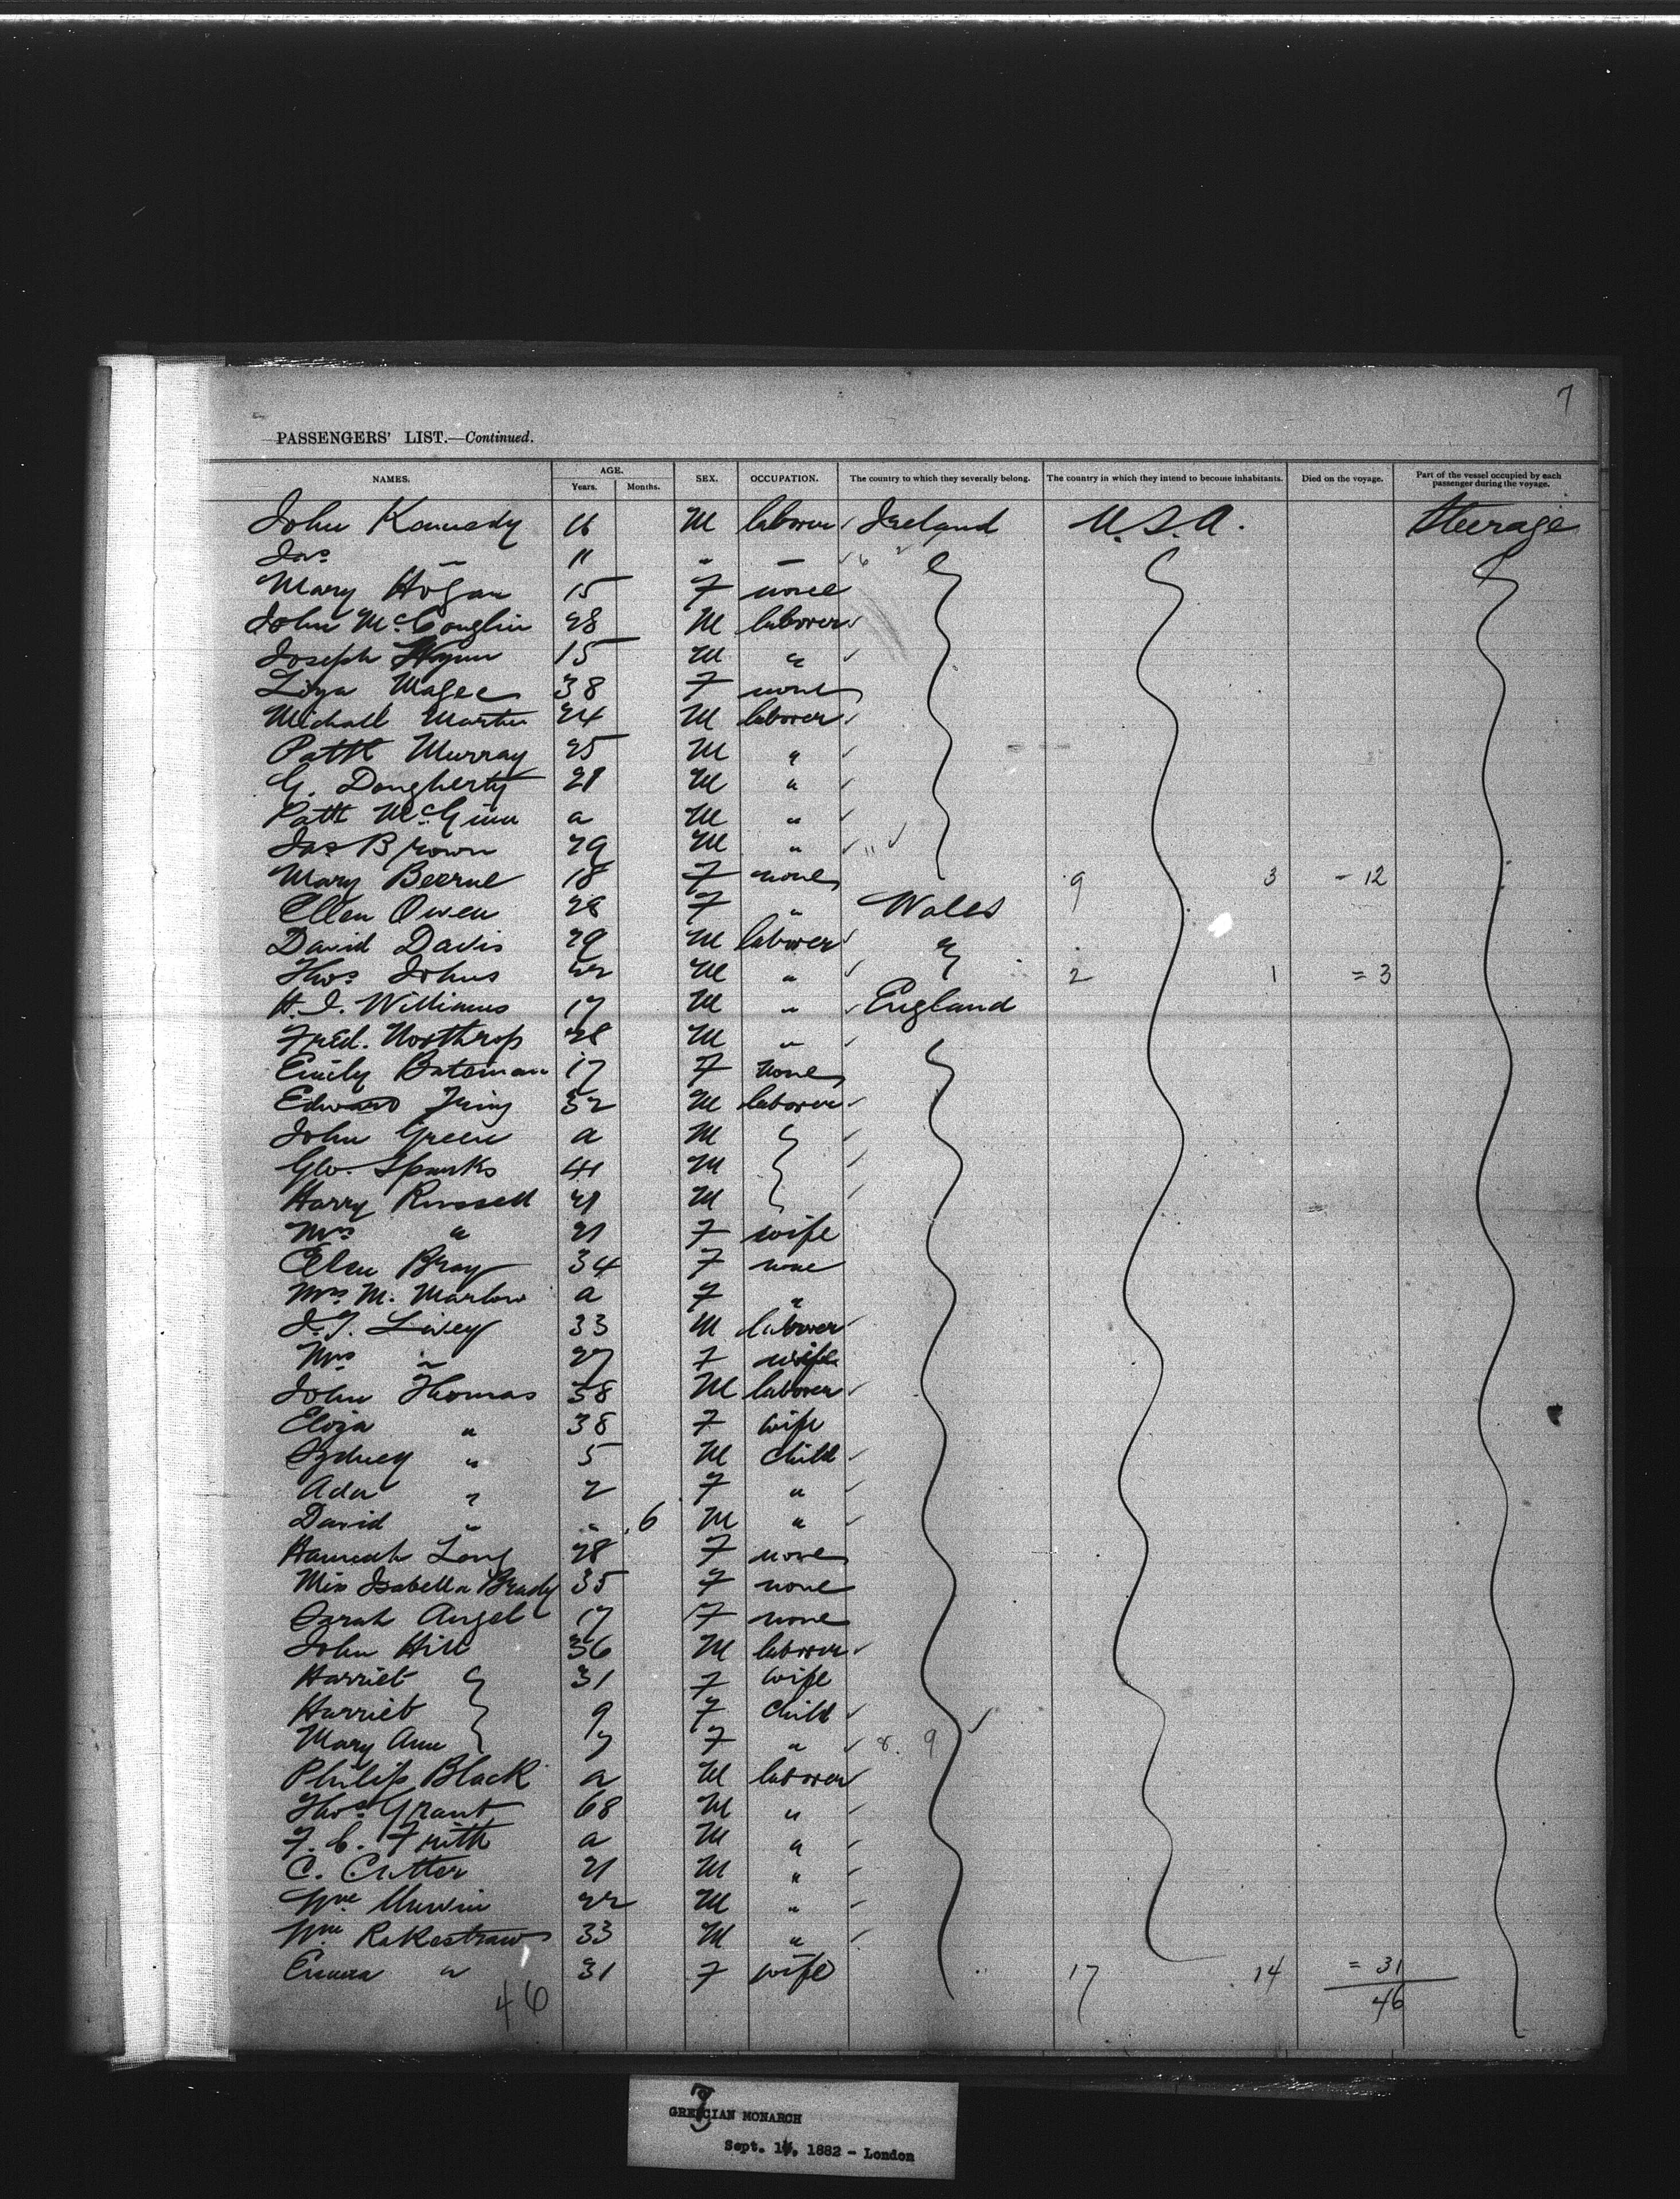 7
PASSENGERS' LIST.—Continued.
NAMES. AGE. Years. Months. SEX. OCCUPATION. The country to which they severally belong. The country in which they intend to become inhabitants. Died on the voyage. Part of the vessel occupied by each passenger during the voyage.
John Kennedy 16 M laborer Ireland U.S.A. Steerage
Jas " 11 " "
Mary Hogan 15 F none
John McCoughlin 28 M laborer
Joseph 15 M "
Liza Magee 38 F none
Michall Martin 24 M laborer
Patk Murray 25 M "
G. Dougherty 21 M "
Patk McGinn a M "
Jas Brown 29 M " 11
Mary Beerne 18 F none 9 3 - 12
Ellen Owen 28 F " Wales
David Davis 29 M laborer "
Thos Johns 22 M " 2 1 = 3
H. J. Williams 17 M " England
Fred. Northrop 28 M "
Emily Bateman 17 F none
Edward 32 M laborer
John Green a M
Geo. Sparks 41 M
Harry Russell 21 M
Mrs " 21 F wife
Ellen Bray 34 F none
Mrs M. Marlow a F "
J. T. Livey 33 M laborer
Mrs " 27 F wife
John Thomas 38 M laborer
Eliza " 38 F wife
Sydney " 5 M child
Ada " 2 F "
David " " 6 M "
Hannah Long 28 F none
Miss Isabella Brady 35 F none
Sarah Angel 17 F none
John Hill 36 M laborer
Harriet 31 F wife
Harriet 9 F child
Mary Ann 7 F " 8. 9
Philip Black a M laborer
Thos Grant 68 M "
F. C. Frith a M "
C. Cutter 21 M "
Wm Unwin 22 M "
Wm Rakestraw 33 M "
Emma " 31 F wife 17 14 = 31
46 46
GRECIAN MONARCH
Sept. 1, 1882 - London